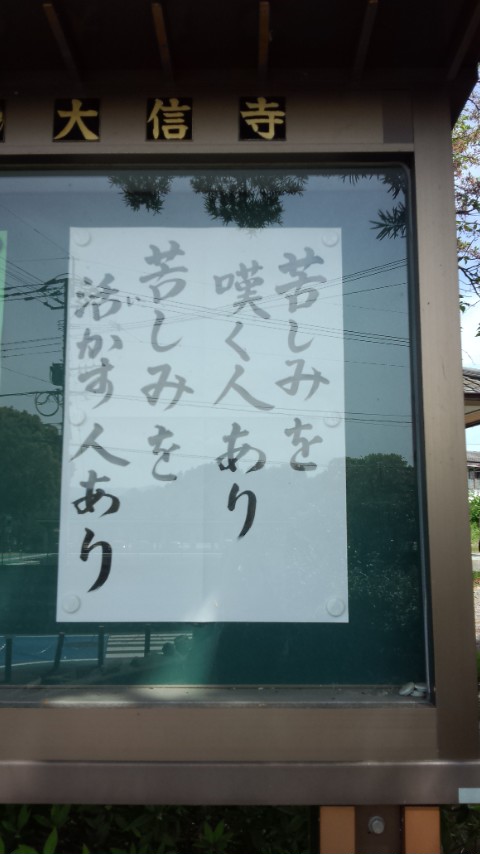 大信寺
苦しみを
嘆く人あり
苦しみを
活かす人あり
い